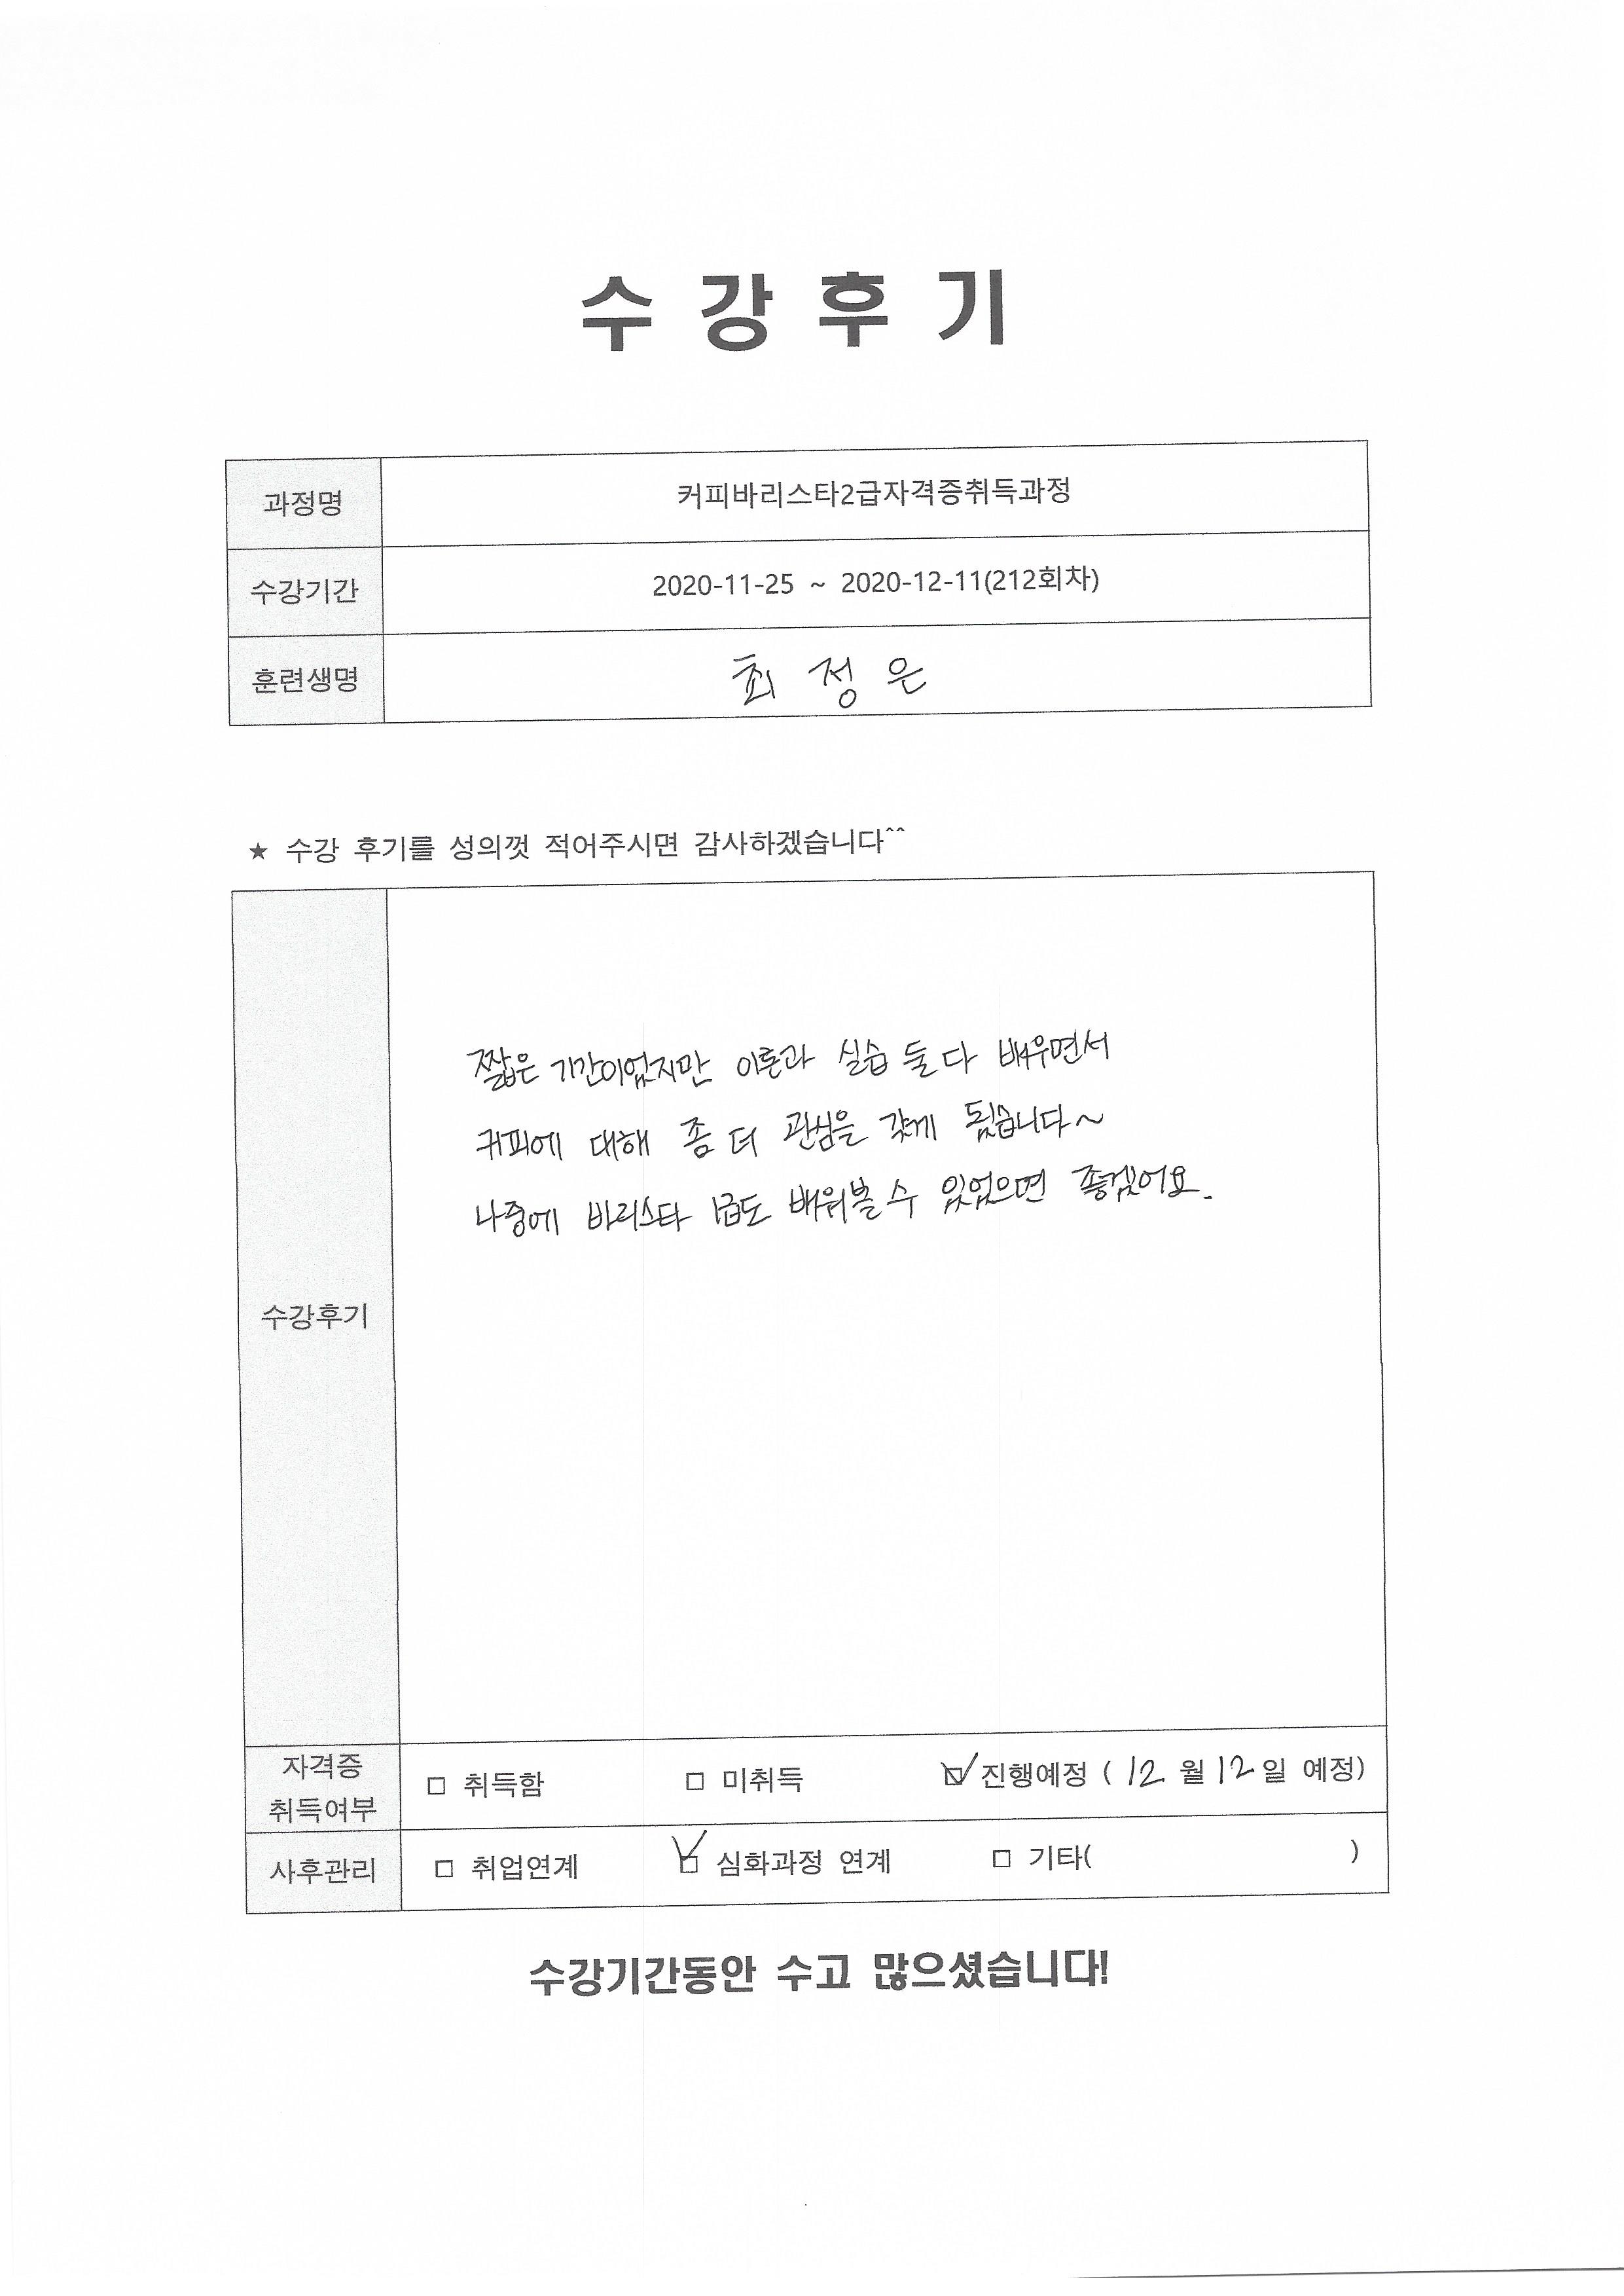 수 강 후 기
과정명 커피바리스타2급자격증취득과정
수강기간 2020-11-25 ~ 2020-12-11(212회차)
훈련생명 최 정 은
★ 수강 후기를 성의껏 적어주시면 감사하겠습니다^^
짧은 기간이었지만 이론과 실습 둘 다 배우면서
커피에 대해 좀 더 관심을 갖게 됬습니다~
나중에 바리스타 1급도 배워볼 수 있었으면 좋겠어요.
수강후기
자격증
취득여부
□ 취득함 □ 미취득 ☑ 진행예정 ( 12 월 12 일 예정)
사후관리 □ 취업연계 ☑ 심화과정 연계 □ 기타( )
수강기간동안 수고 많으셨습니다!